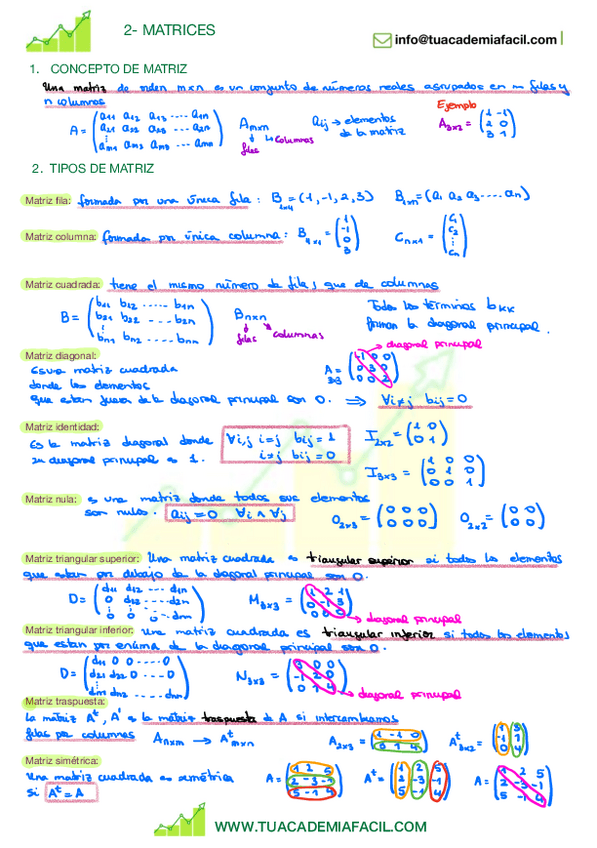 2- MATRICES
info@tuacademiafacil.com
1. CONCEPTO DE MATRIZ
Una matriz de orden mxn es un conjunto de números reales agrupados en m filas y
n columnas
Ejemplo
A = (a11 a12 a13 ... a1n
a21 a22 a23 ... a2n
⋮
am1 am2 am3 ... amn)
Amxn
filas columnas
aij → elementos
de la matriz
A3x2 = (1 -1
2 0
3 1)
2. TIPOS DE MATRIZ
Matriz fila: formada por una única fila : B1x4 = (-1, -1, 2, 3) B1xn = (a1 a2 a3 .... an)
Matriz columna: formada por única columna : B4x1 = (1
-1
0
3) Cnx1 = (c1
c2
⋮
cn)
Matriz cuadrada: tiene el mismo número de filas que de columnas
B = (b11 b12 ..... b1n
b21 b22 ... b2n
⋮
bn1 bn2 ... bnn)
Bnxn
filas columnas
Todos los términos bkk
forman la diagonal principal.
Matriz diagonal:
diagonal principal
Es una matriz cuadrada
donde los elementos
que están fuera de la diagonal principal son 0. ⇒ ∀i≠j bij = 0
A3x3 = (-1 0 0
0 3 0
0 0 2)
Matriz identidad:
Es la matriz diagonal donde
su diagonal principal es 1.
∀i,j i=j bij = 1
i≠j bij = 0
I2x2 = (1 0
0 1)
I3x3 = (1 0 0
0 1 0
0 0 1)
Matriz nula: es una matriz donde todos sus elementos
son nulos. aij = 0 ∀i ∧ ∀j
O2x3 = (0 0 0
0 0 0) O2x2 = (0 0
0 0)
Matriz triangular superior: Una matriz cuadrada es triangular superior si todos los elementos
que estan por debajo de la diagonal principal son 0.
D = (d11 d12 ... d1n
0 d22 .... d2n
⋮
0 0 ... dnn)
M3x3 = (1 2 1
0 -1 3
0 0 0)
diagonal principal
Matriz triangular inferior: una matriz cuadrada es triangular inferior si todos los elementos
que estan por encima de la diagonal principal son 0.
D = (d11 0 0 .... 0
d21 d22 0 .... 0
⋮
dn1 dn2 ... dnn)
N3x3 = (3 0 0
-1 2 0
0 1 4)
diagonal principal
Matriz traspuesta:
La matriz At, A' es la matriz traspuesta de A si intercambiamos
filas por columnas Anxm → Atmxn
A2x3 = (1 -1 0
0 1 4) At3x2 = (1 0
-1 1
0 4)
Matriz simétrica:
Una matriz cuadrada es simétrica
si At = A
A = (1 2 5
2 -3 -1
5 -1 4) At = (1 2 5
2 -3 -1
5 -1 4) A = (1 2 5
2 -3 -1
5 -1 4)
WWW.TUACADEMIAFACIL.COM